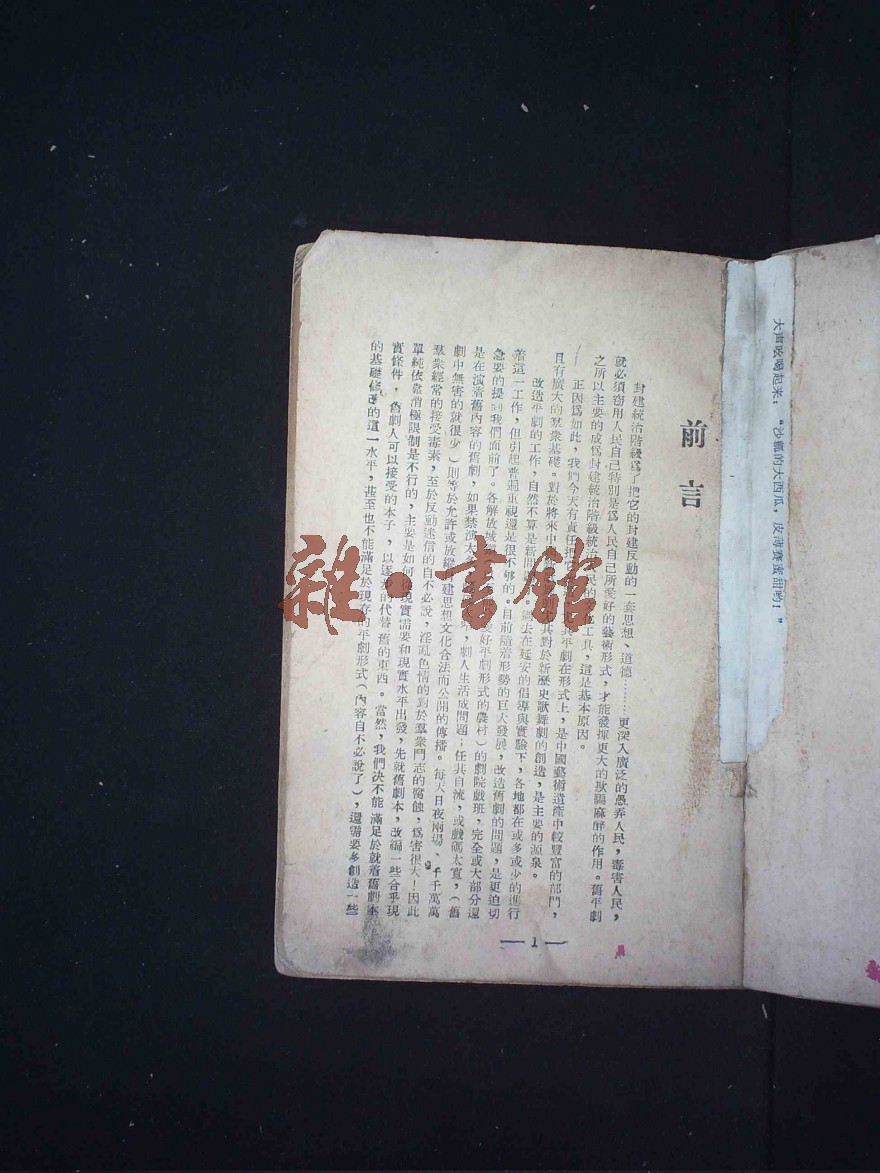 前言
封建統治階級爲了把它的封建反動的一套思想、道德………更深入廣泛的愚弄人民，毒害人民，
就必須窃用人民自己特別是爲人民自己所愛好的藝術形式，才能發揮更大的欺騙麻醉的作用。舊平劇
之所以主要的成爲封建統治階級統治 民的 工具，這是基本原因。
正因爲如此，我們今天有責任把 其平劇在形式上，是中國藝術遺產中較豐富的部門，
且有廣大的羣衆基礎。對於將來中 其對於新歷史歌舞劇的創造，是主要的源泉。
改造平劇的工作，自然不算是新問 。過去在延安的倡導與實驗下，各地都在或多或少的進行
着這一工作，但引起普遍重視還是很不够的。目前隨着形勢的巨大發展，改造舊劇的問題，是更迫切
急要的提到我們面前了。各解放城 好平劇形式的農村）的劇院戲班，完全或大部分還
是在演着舊內容的舊劇，如果禁演太 ，劇人生活成問題；任其自流，或戲碼太寬，（舊
劇中無害的就很少）則等於允許或放縱 建思想文化合法而公開的傳播。每天日夜兩場、千千萬萬
羣衆經常的接受毒素，至於反動迷信的自不必說，淫亂色情的對於羣衆鬥志的腐蝕，爲害很大！因此
單純依靠消極限制是不行的，主要是如何 現實需要和現實水平出發，先就舊劇本，改編一些合乎現
實條件，舊劇人可以接受的本子，以逐 的代替舊的東西。當然，我們決不能滿足於就着舊劇本
的基礎修 的這一水平，甚至也不能滿足於現存的平劇形式（內容自不必說了），還需要多創造一些
—1—
大声吆喝起来：“沙瓤的大西瓜，皮薄赛蜜甜哟！”
雜·書館